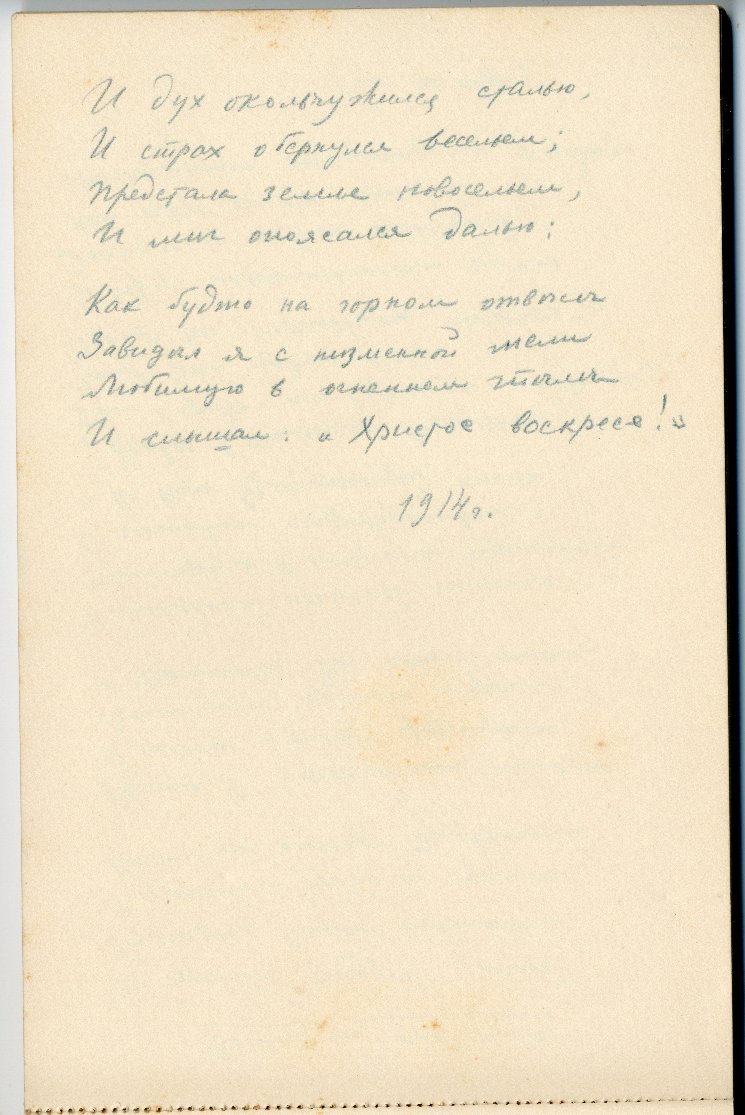 И дух окольчужился сталью,
И страх обернулся весельем;
Предстала земля новосельем,
И миг опоясался далью:
Как будто на горном отвесе
Завидел я с низменной мели
Любимую в огненном теле
И слышал: „Христос воскресе!"
1914 г.